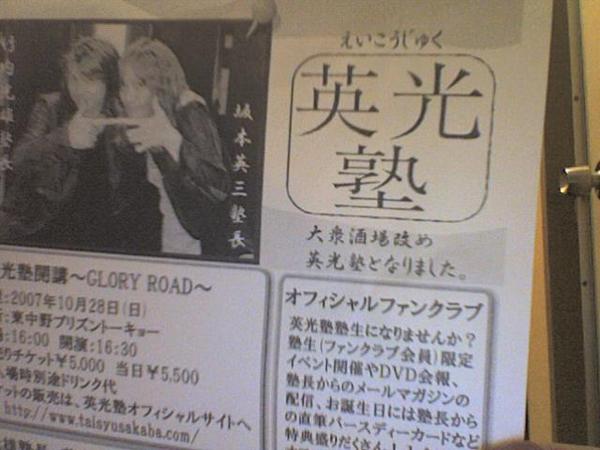 えいこうじゅく
英光
塾
坂本英三塾長
大衆酒場改め
英光塾となりました。
光塾開講～GLORY ROAD～
:2007年10月28日(日)
:東中野プリズントーキョー
:16:00 開演:16:30
売りチケット¥5,000 当日¥5,500
入場時別途ドリンク代
ケットの販売は、英光塾オフィシャルサイトへ
http://www.taisyusakaba.com/
オフィシャルファンクラブ
英光塾塾生になりませんか？
塾生(ファンクラブ会員)限定
イベント開催やDVD会報、
塾長からのメールマガジンの
配信、お誕生日には塾長から
の直筆バースディーカードなど
特典盛りだくさん！